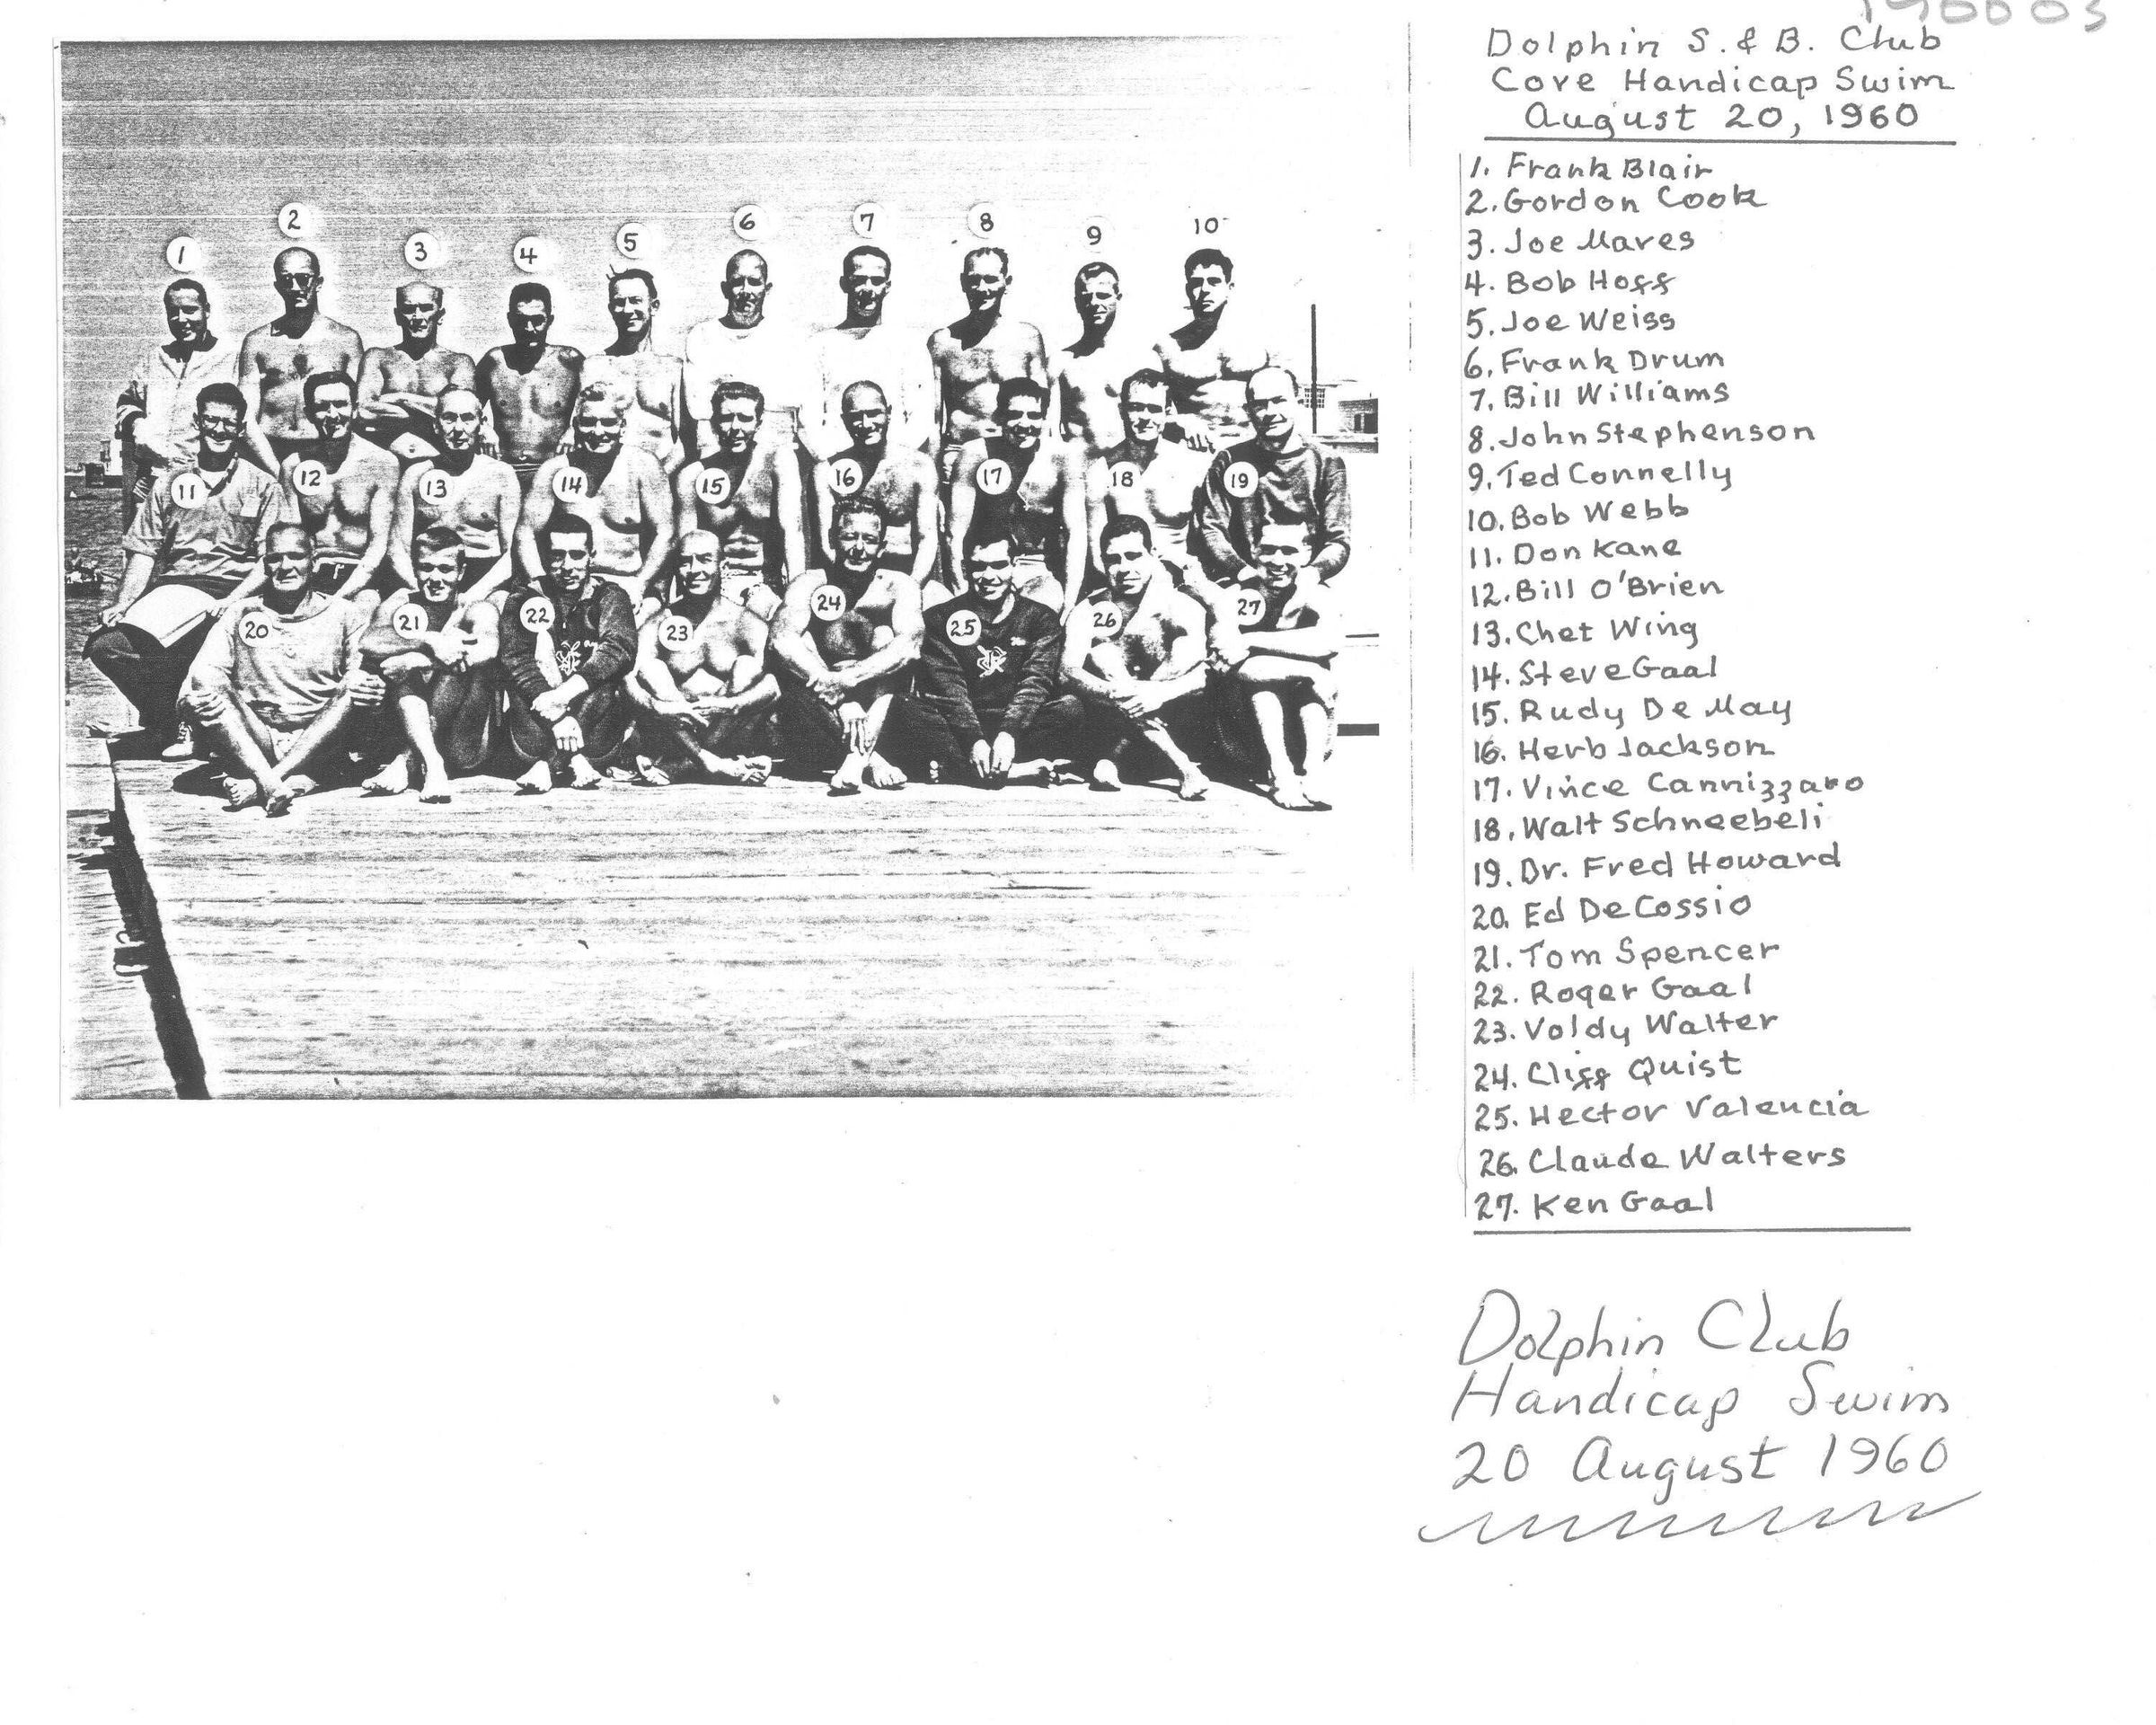 1
2
3
4
5
6
7
8
9
10
11
12
13
14
15
16
17
18
19
20
21
22
23
24
25
26
27
Dolphin S. & B. Club
Cove Handicap Swim
August 20, 1960
1. Frank Blair
2. Gordon Cook
3. Joe Mares
4. Bob Hoff
5. Joe Weiss
6. Frank Drum
7. Bill Williams
8. John Stephenson
9. Ted Connelly
10. Bob Webb
11. Don Kane
12. Bill O'Brien
13. Chet Wing
14. Steve Gaal
15. Rudy De May
16. Herb Jackson
17. Vince Cannizzaro
18. Walt Schneebeli
19. Dr. Fred Howard
20. Ed DeCossio
21. Tom Spencer
22. Roger Gaal
23. Voldy Walter
24. Cliff Quist
25. Hector Valencia
26. Claude Walters
27. Ken Gaal
Dolphin Club
Handicap Swim
20 August 1960